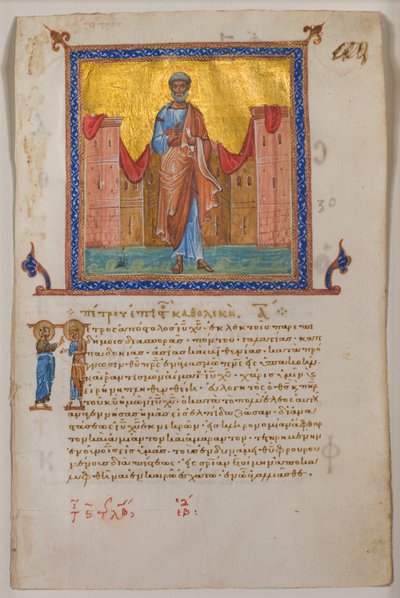 πέτρου ἐπιστ καθολική. Α
Πέτρος ἀπόστολος ιυ χυ. ἐκλεκτοῖς παρεπι
δήμοις διασπορᾶς. πόντου. γαλατίας. καπ
παδοκίας. ἀσίας καὶ βιθυνίας. κατὰ πρό
γνωσιν θυ πρς ἐν ἁγιασμῶ πνς εἰς ὑπακοὴν
καὶ ῥαντισμὸν αἵματος ιυ χυ. χάρις ὑμῖν
εἰρήνη πληθυνθείη. εὐλογητὸς ὁ θς κ πη
ρ τοῦ κυ ἡμῶν ιυ χυ. ὁ κατὰ τὸ πολὺ ἔλεος αὐτοῦ
ἀναγεννήσας ἡμᾶς εἰς ἐλπίδα ζῶσαν. δι' ἀνα
στάσεως ιυ χυ ἐκ νεκρῶν. εἰς κληρονομίαν ἄφθαρ
τον καὶ ἀμίαντον καὶ ἀμάραντον. τετηρημένην
ἐν οὐνοῖς εἰς ὑμᾶς. τοὺς ἐν δυνάμει θυ φρουρου
μένους διὰ πίστεως. εἰς σρίαν ἑτοίμην ἀποκα
λυφθῆναι ἐν καιρῶ ἐσχάτω. ἐν ᾧ ἀγαλλιᾶσθε.
30